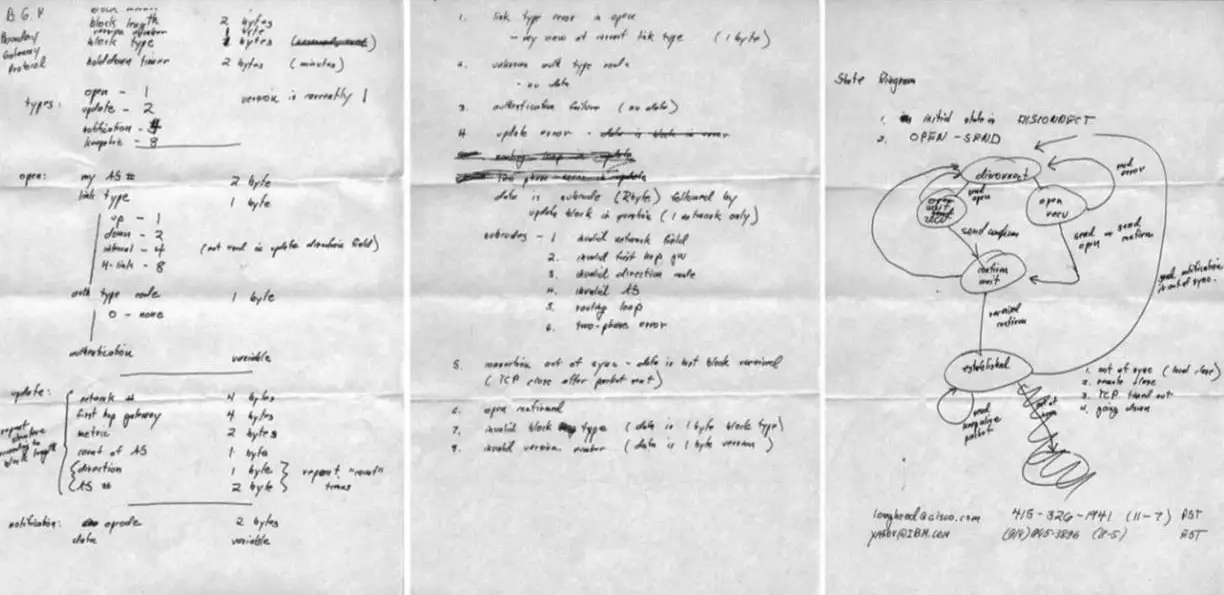 B.G.P.
Boundary
Gateway
Protocol
block length 2 bytes
version number 1 byte
block type bytes
holddown timer 2 bytes (minutes)
types:
open - 1
update - 2
notification - 4
keepalive - 8
version is currently 1
open:
my AS # 2 byte
link type 1 byte
up - 1
down - 2
internal - 4 (not used in update direction field)
H-link - 8
auth type code 1 byte
0 - none
authentication variable
update:
repeat
structure
according to
block length
network # 4 bytes
first hop gateway 4 bytes
metric 2 bytes
count of AS 1 byte
direction 1 byte
AS # 2 byte
repeat "count"
times
notification: opcode 2 bytes
data variable
1. link type error in open
- my view of correct link type (1 byte)
2. unknown auth type code
- no data
3. authentication failure (no data)
4. update error - data is block in error
routing loop in update
two phase error in update
data is subcode (2 byte) followed by
update block in question (1 network only)
subcodes - 1 invalid network field
2. invalid first hop gw
3. invalid direction code
4. invalid AS
5. routing loop
6. two-phase error
5. connection out of sync - data is last block received
(TCP close after packet sent)
6. open confirmed
7. invalid block type (data is 1 byte block type)
8. invalid version number (data is 1 byte version)
State Diagram
1. initial state is DISCONNECT
2. OPEN - SEND
disconnect
send
error
send
open
open
recv
send confirm
send or send
open confirm
confirm
wait
send notification
is out of sync.
received
confirm
established
1. out of sync (local close)
2. remote close
3. TCP timed out
4. going down
send
keepalive
packets
out of
sync
lougheed@cisco.com 415-326-1941 (11-7) PST
yakov@IBM.COM (914)945-3896 (8-5) EST